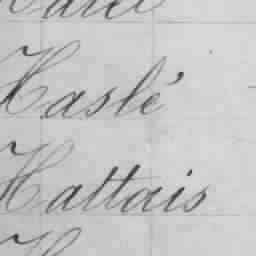 Haslé
Hattais